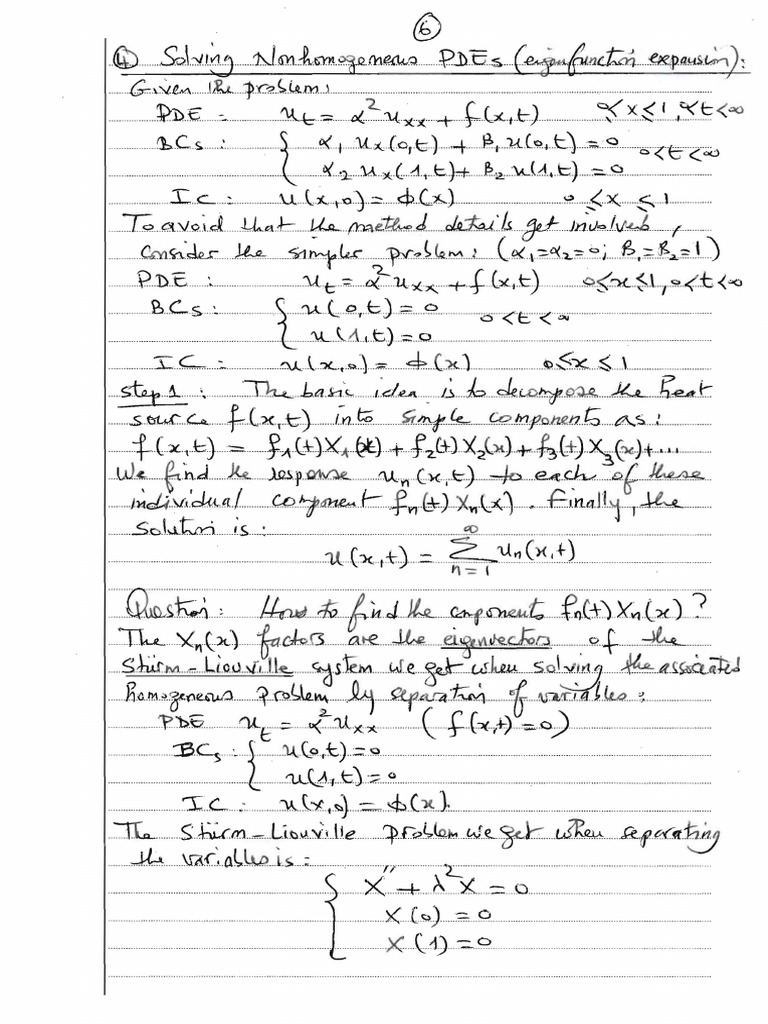 ⑥
④ Solving Nonhomogeneous PDEs (eigenfunction expansion):
Given the problem:
PDE : u_t = α² u_xx + f(x,t) 0<x≤1, 0<t<∞
BCs : { α₁ u_x(0,t) + β₁ u(0,t) = 0
α₂ u_x(1,t) + β₂ u(1,t) = 0 0<t<∞
IC : u(x,0) = ϕ(x) 0 ≤ x ≤ 1
To avoid that the method details get involved,
consider the simpler problem: (α₁=α₂=0; β₁=β₂=1)
PDE : u_t = α² u_xx + f(x,t) 0≤x≤1, 0<t<∞
BCs : { u(0,t) = 0
u(1,t) = 0 0<t<∞
IC : u(x,0) = ϕ(x) 0≤x≤1
step 1 : The basic idea is to decompose the heat
source f(x,t) into simple components as:
f(x,t) = f₁(t)X₁(x) + f₂(t)X₂(x) + f₃(t)X₃(x) + ...
We find the response uₙ(x,t) to each of these
individual component fₙ(t)Xₙ(x). Finally, the
solution is :
u(x,t) = ∑_{n=1}^{∞} uₙ(x,t)
Question: How to find the components fₙ(t)Xₙ(x)?
The Xₙ(x) factors are the eigenvectors of the
Stürm-Liouville system we get when solving the associated
homogeneous problem by separation of variables:
PDE u_t = α² u_xx (f(x,t)=0)
BCs : { u(0,t) = 0
u(1,t) = 0
IC : u(x,0) = ϕ(x).
The Stürm-Liouville problem we get when separating
the variables is :
{ X'' + λ²X = 0
X(0) = 0
X(1) = 0